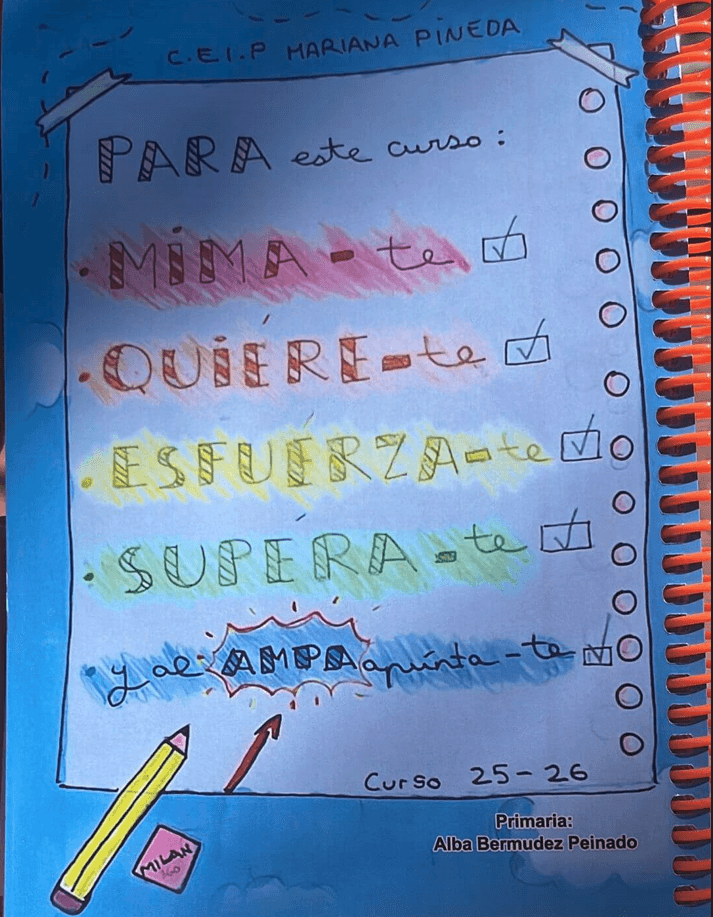 C.E.I.P MARIANA PINEDA
PARA este curso:
·MÍMA-te
·QUIÉRE-te
·ESFUÉRZA-te
·SUPÉRA-te
·y al AMPA apúnta-te
Curso 25-26
Primaria:
Alba Bermudez Peinado
MILAN